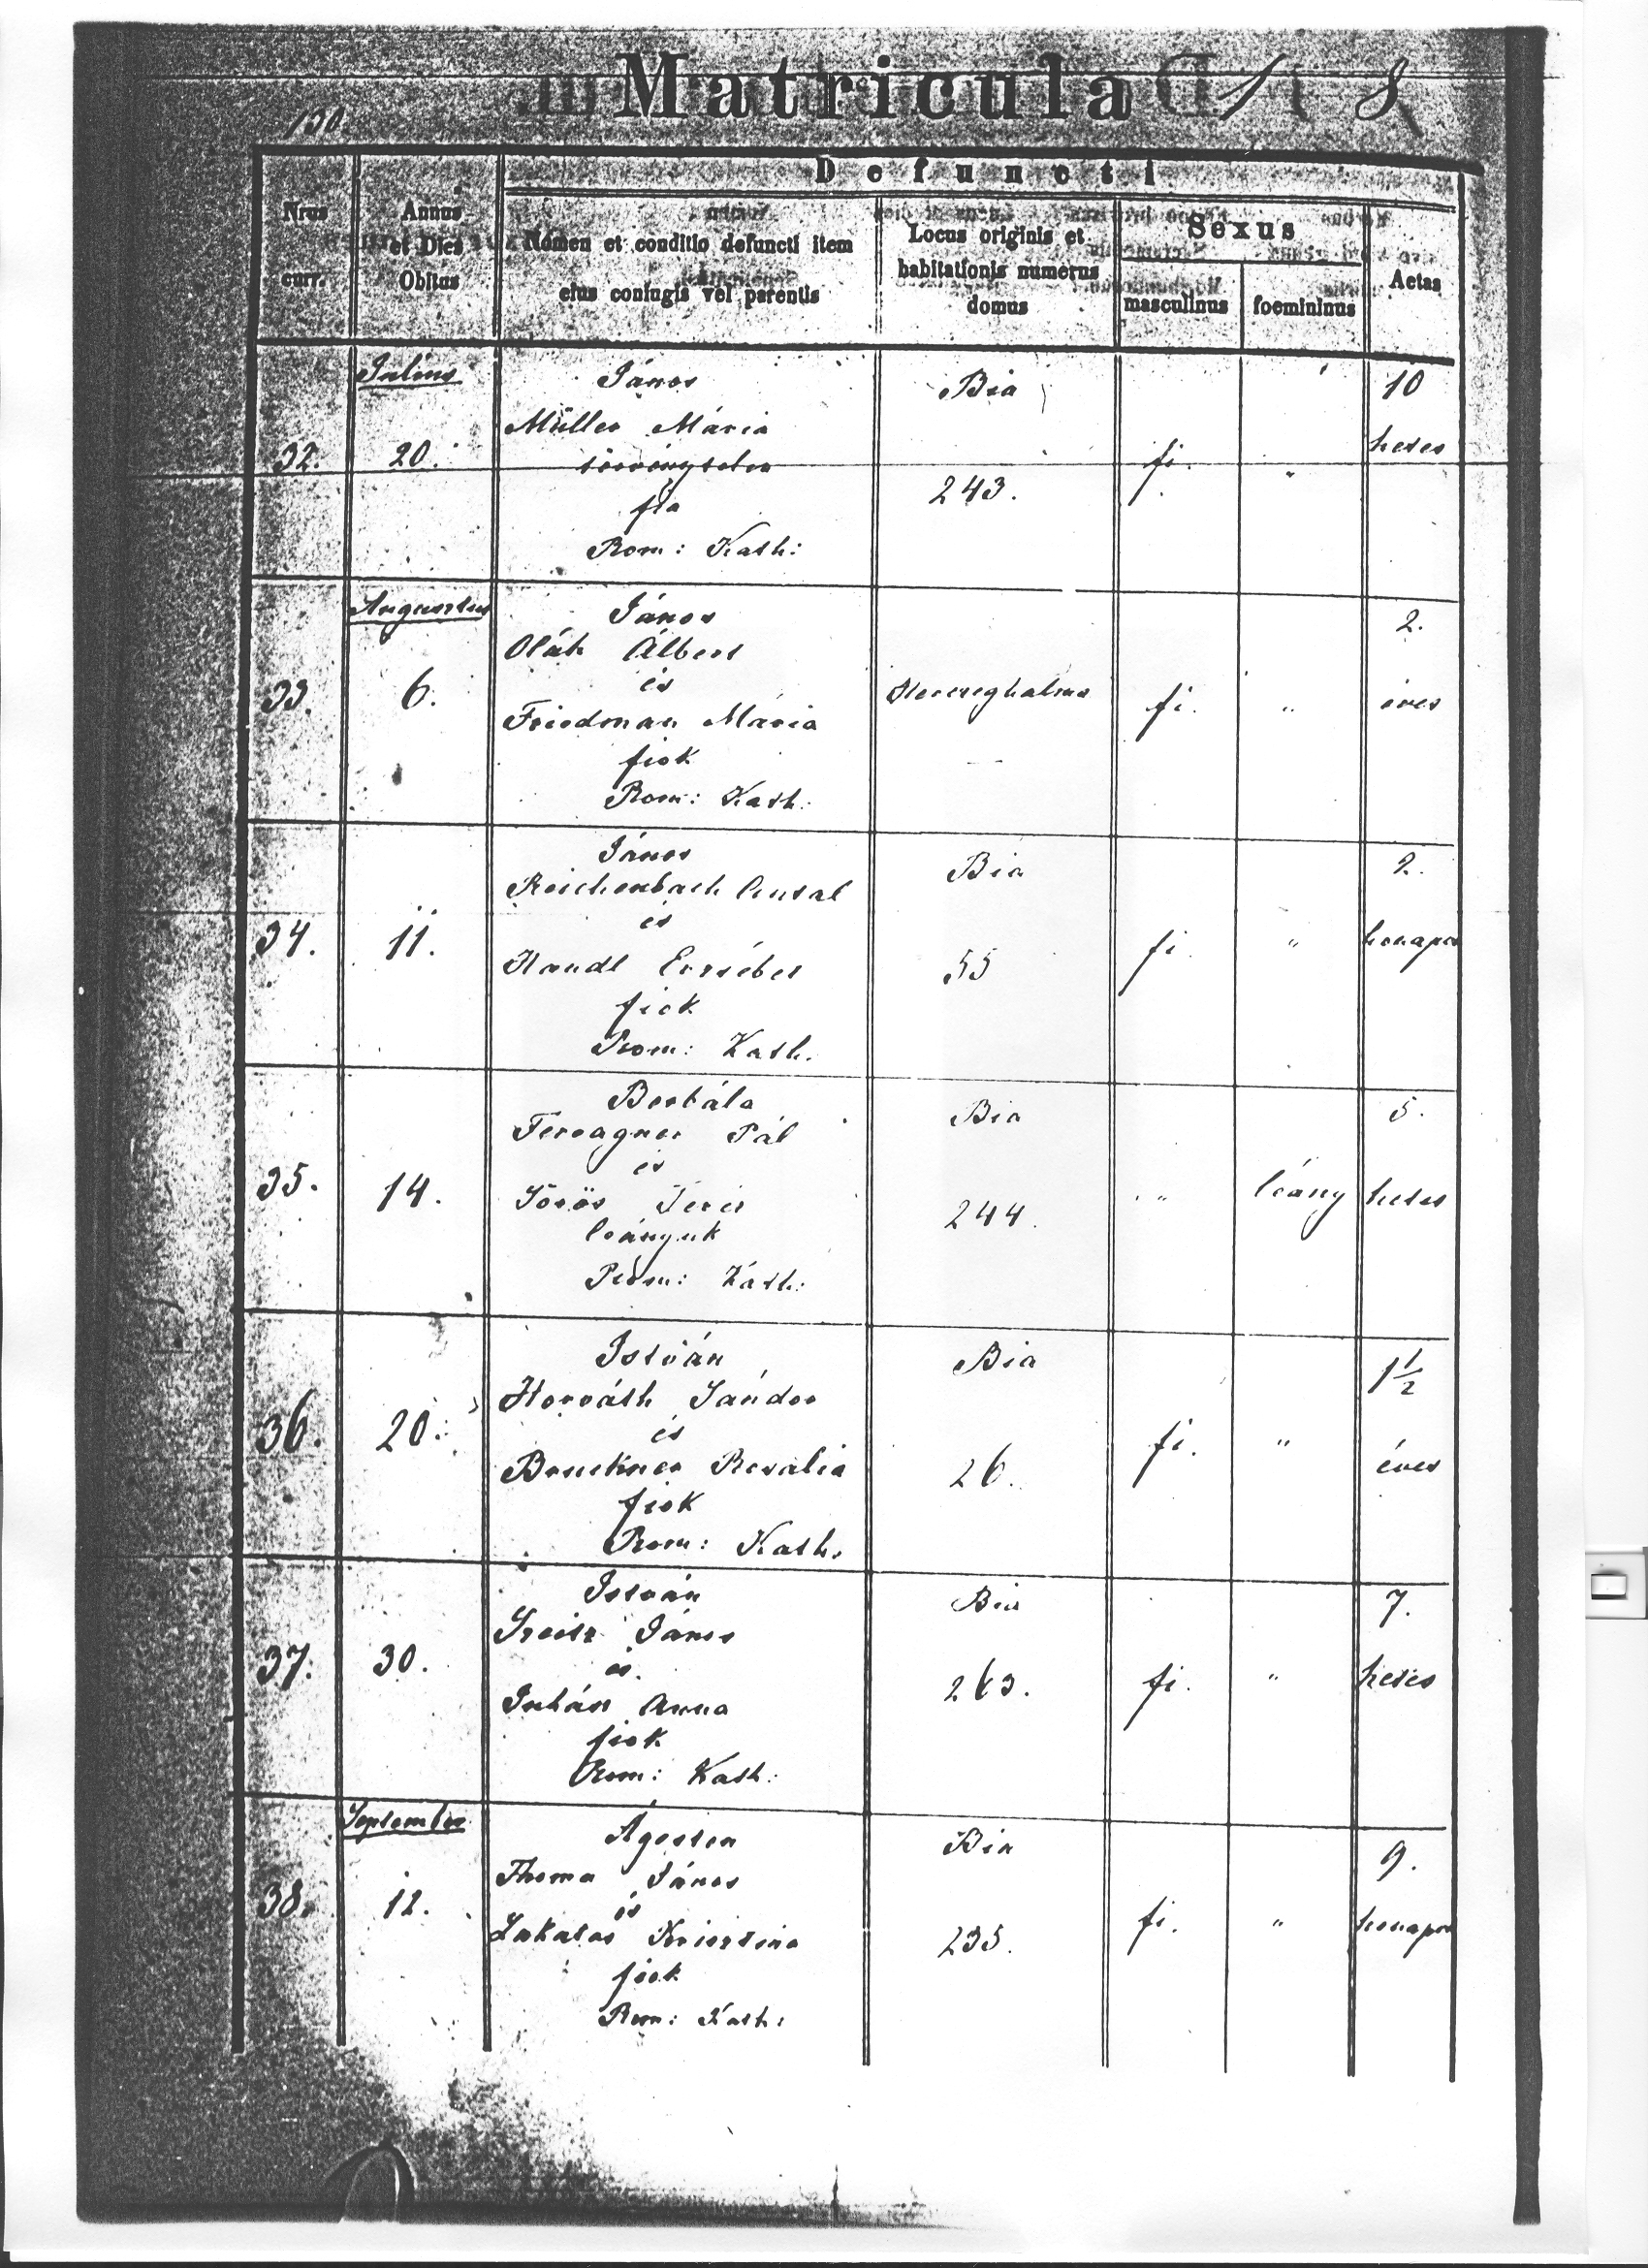 Matricula
130
Defuncti
Nrus curr.
Annus et Dies Obitus
Nomen et conditio defuncti item eius coniugis vel parentis
Locus originis et habitationis numerus domus
Sexus
masculinus
foemininus
Aetas
Julius
János
Bia
10
Müller Mária
32.
20.
törvénytelen
fi.
"
hetes
243.
fia
Rom: Kath:
Augusztus
János
2.
Oláh Albert
és
33.
6.
Herczeghalma
fi.
"
éves
Friedman Mária
fiok
Rom: Kath:
János
Bia
2.
Reichenbach Antal
és
34.
11.
fi.
"
honapos
Handl Erzsébet
55
fiok
Rom: Kath.
Borbála
Bia
5.
Pál
és
35.
14.
"
leány
hetes
Teréz
244.
leányuk
Rom: Kath:
István
Bia
1 1/2
Horváth Sándor
és
36.
20.
fi.
"
éves
Bruckner Rozalia
26.
fiok
Rom: Kath.
István
Bia
7.
János
és
37.
30.
263.
fi.
"
hetes
Juhász Anna
fiok
Rom: Kath:
September
Ágoston
Bia
9.
Thoma János
és
38.
12.
fi.
"
honapos
Lakatos Krisztina
235.
fiok
Rom: Kath: